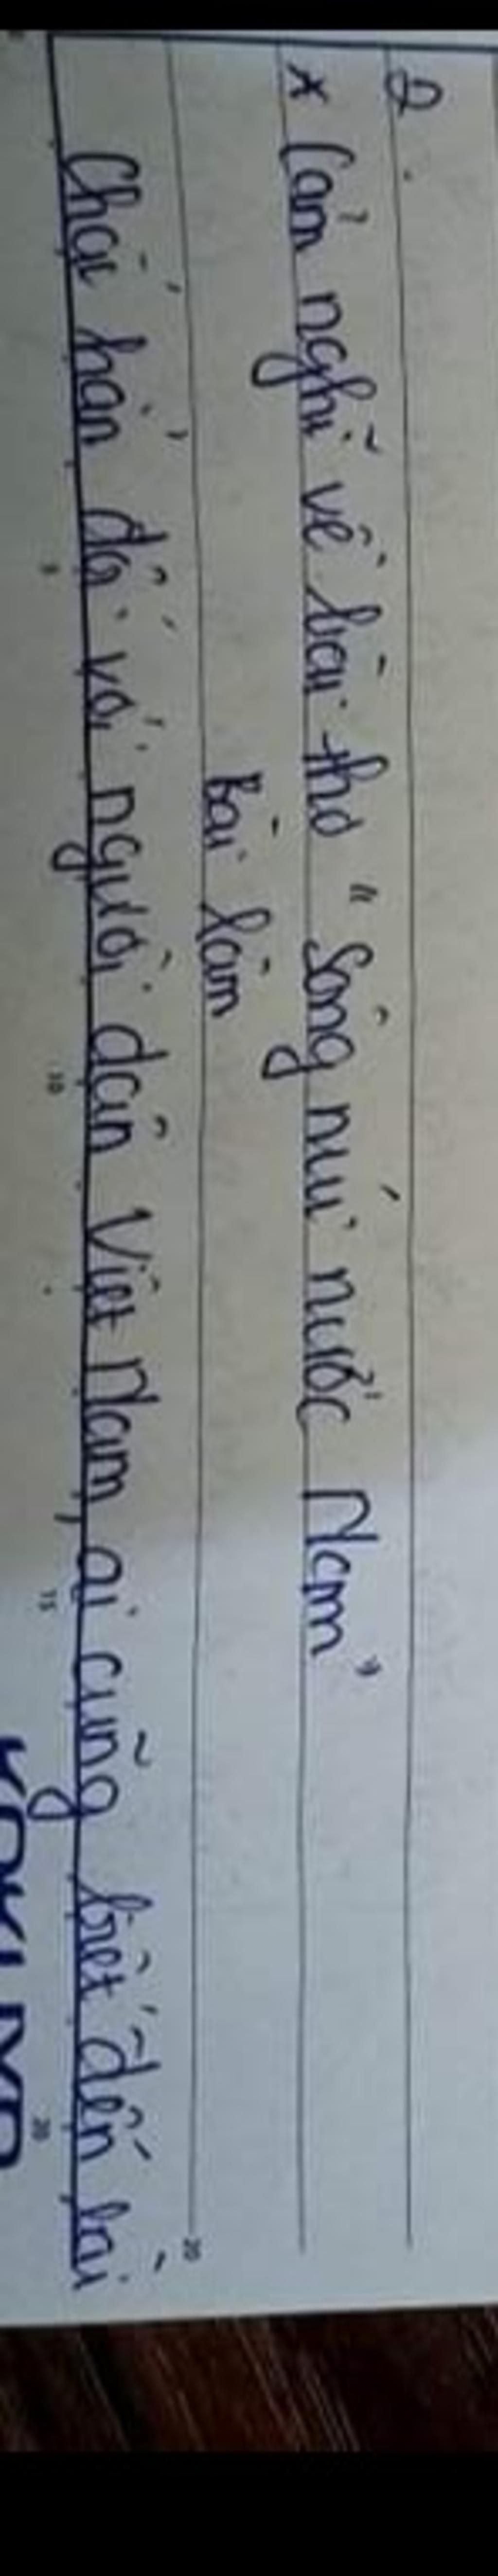 2.
* Cảm nghĩ về bài thơ "Sông núi nước Nam"
Bài làm
Chắc hẳn đối với người dân Việt Nam, ai cũng biết đến bài